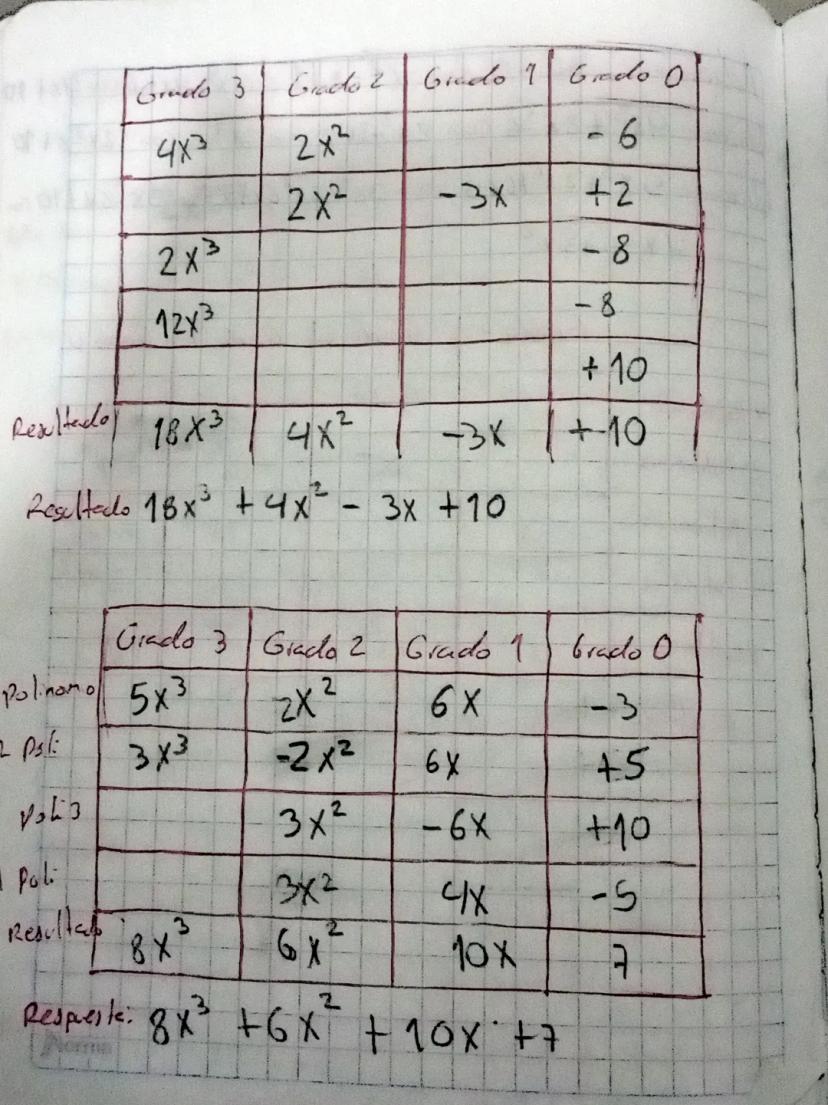 Grado 3 Grado 2 Grado 1 Grado 0
4x³ 2x² - 6
2x² -3x +2
2x³ - 8
12x³ - 8
+10
Resultado 18x³ 4x² -3x +10
Resultado 18x³ + 4x² - 3x +10
Grado 3 Grado 2 Grado 1 Grado 0
polinomo 5x³ 2x² 6x -3
2 Poli 3x³ -2x² 6x +5
Poli 3 3x² -6x +10
Poli 3x² 4x -5
Resultado 8x³ 6x² 10x 7
Respuesta: 8x³ +6x² + 10x +7
Norma